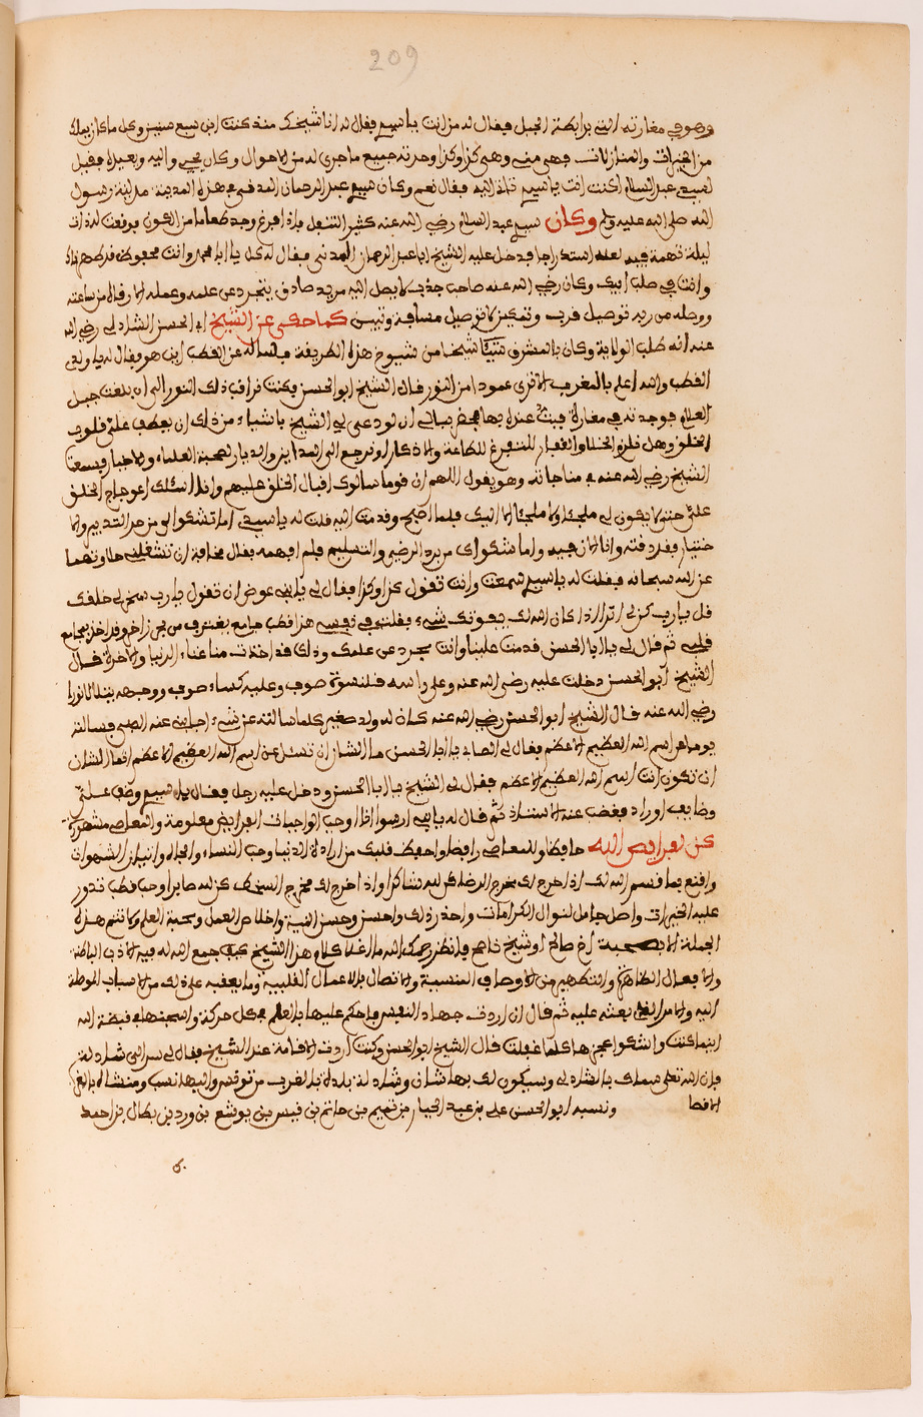 209
وهو في مغارته التي برابطة الجبل فقال له من انت يا سيدي فقال له انا شيخك منذ كنت ابن سبع سنين وكل ما كان يصلك
من الخيرات والمنازلات فهي مني وهي كذا وكذا وحدثه جميع ما جرى له من الاحوال وكان يجيء واليه ويعيده فقيل
لسيدي عبد السلام اكنت انت يا سيدي تاخذ اليه فقال نعم وكان سيدي عبد الرحمان المدفون في هذه المدينة مدينة رسول
الله صلى الله عليه وسلم وكان سيدي عبد السلام رضي الله عنه كثير التنفل فاذا فرغ وجد طعاما من الكون فوقعت له ذات
ليلة تهمة فيه لعله استدراجا فدخل عليه الشيخ ابا عبد الرحمان المدني فقال له كل يا ابا محمد وانت محفوظ
وانت في صلب ابيك وكان رضي الله عنه صاحب جذب لا يصل اليه مريد صادق يتجرد عن علمه وعمله الا رفاه من ساعته
ووصله من ربه توصيل قريب وتمكين لا توصيل مسافة وتبيين كما حكي عن الشيخ ابي الحسن الشاذلي رضي الله
عنه انه طلب الولاية وكان بالمشرق شيخا من شيوخ هذه الطريقة فسأله عن القطب اين هو فقال له يا ولدي
القطب والله اعلم بالمغرب الا ترى عمودا من النور قال الشيخ ابو الحسن فكنت نراقب ذلك النور الى ان بلغت جبل
العلم فوجدته في مغارة فبت عنده بها فخطر ببالي ان لو دعى لي الشيخ باشياء من ذلك ان يعطف علي قلوب
الخلق وهل نلزم الخلا والقفار للتفرغ للطاعة والاذكار او نرجع الى المداين والديار لصحبة العلماء والاخيار فسمعت
الشيخ رضي الله عنه في مناجاته وهو يقول اللهم ان قوما سالوك اقبال الخلق عليهم وانا اسئلك اعوجاج الخلق
علي حتى لا يكون لي ملجئا ولا ملجئا الا اليك فلما اصبح وقدمت اليه قلت له يا سيدي اما تشكوا من حر التدبير والا
ختيار فقد ذقته وانا الان فيه واما شكواي من برد الرضى والتسليم فلم افهمه فقال مخافة ان تشغلني حلاوتهما
عن الله سبحانه فقلت له يا سيدي سمعت وانت تقول كذا وكذا فقال لي يا بني عوض ان تقول يا رب سخر لي خلقك
قل يا رب كن لي اترى اذا كان الله لك يفوتك شيء فقلت في نفسي هذا قطب جامع بغترف من بحر زاخر وقد اخذ بمجامع
قلبي ثم قال لي يا ابا الحسن قدمت علينا وانت مجرد عن علمك وذلك قد اخذت منا غناء الدنيا والاخرة قال
الشيخ ابو الحسن دخلت عليه رضي الله عنه وعلى راسه قلنسوة صوف وعليه كساء صوف ووجهه يتلالا نورا
رضي الله عنه قال الشيخ ابو الحسن رضي الله عنه كان له ولد صغير كلما سالته عن شيء اجابني عنه الصبي فسالته
يوما عن اسم الله العظيم الاعظم فقال لي الصبي يا ابا الحسن ما الشان ان تسئل عن اسم الله العظيم الاعظم انما الشان
ان تكون انت اسم الله العظيم الاعظم فقال لي الشيخ يا ابا الحسن ودخل عليه رجل فقال يا سيدي وظف علي
وضايف اوراد فغضب عنه الاستاذ ثم قال له يا بني ارسول انا اوجب الواجبات الفرايض معلومة والمعاصي مشهورة
كن للفرايض الله حافظا وللمعاصي رافضا واحفظ قلبك من ارادة الدنيا وحب النساء والجاه وايثار الشهوات
واقنع بما قسم الله لك اذا خرج لك مخرج الرضا كن لله شاكرا واذا خرج لك مخرج السخط كن لله صابرا وحب قطب تدور
عليه الخيرات واصل جامل لنوال الكرامات واحذر ذلك واحسن وحسن النية واخلاص العمل وصحبة العلم ولا تتم هذه
الجملة الا بصحبة اخ صالح او شيخ ناصح فانظر رحمك الله ما اغنا كلام هذا الشيخ كيف جمع الله له فيه الاداب الباطنة
والافعال الظاهرة والتطهير من الاوصاف النفسية والاتصال بالاعمال القلبية وما يعقبه على ذلك من الاسباب الموصلة
اليه والامر الذي بعثه عليه ثم قال ان اردت جهاد النفس فاحكم عليها بالعلم في كل حركة واسجنها في قبضة الله
اينما كنت واشكوا عجزها كلما غفلت قال الشيخ ابو الحسن وكنت اردت الاقامة عند الشيخ فقال لي سر الى شاذلة
فان الله تعلى سماك بالشاذلي وسيكون لك بها شان وشاذلة بلدة بالقرب من تونس واليها نسب ومنشاه بالغرب
الاقصا ونسبه ابو الحسن علي بن عبد الجبار بن تميم بن حاتم بن قيس بن يوشع بن ورد بن بطال بن احمد